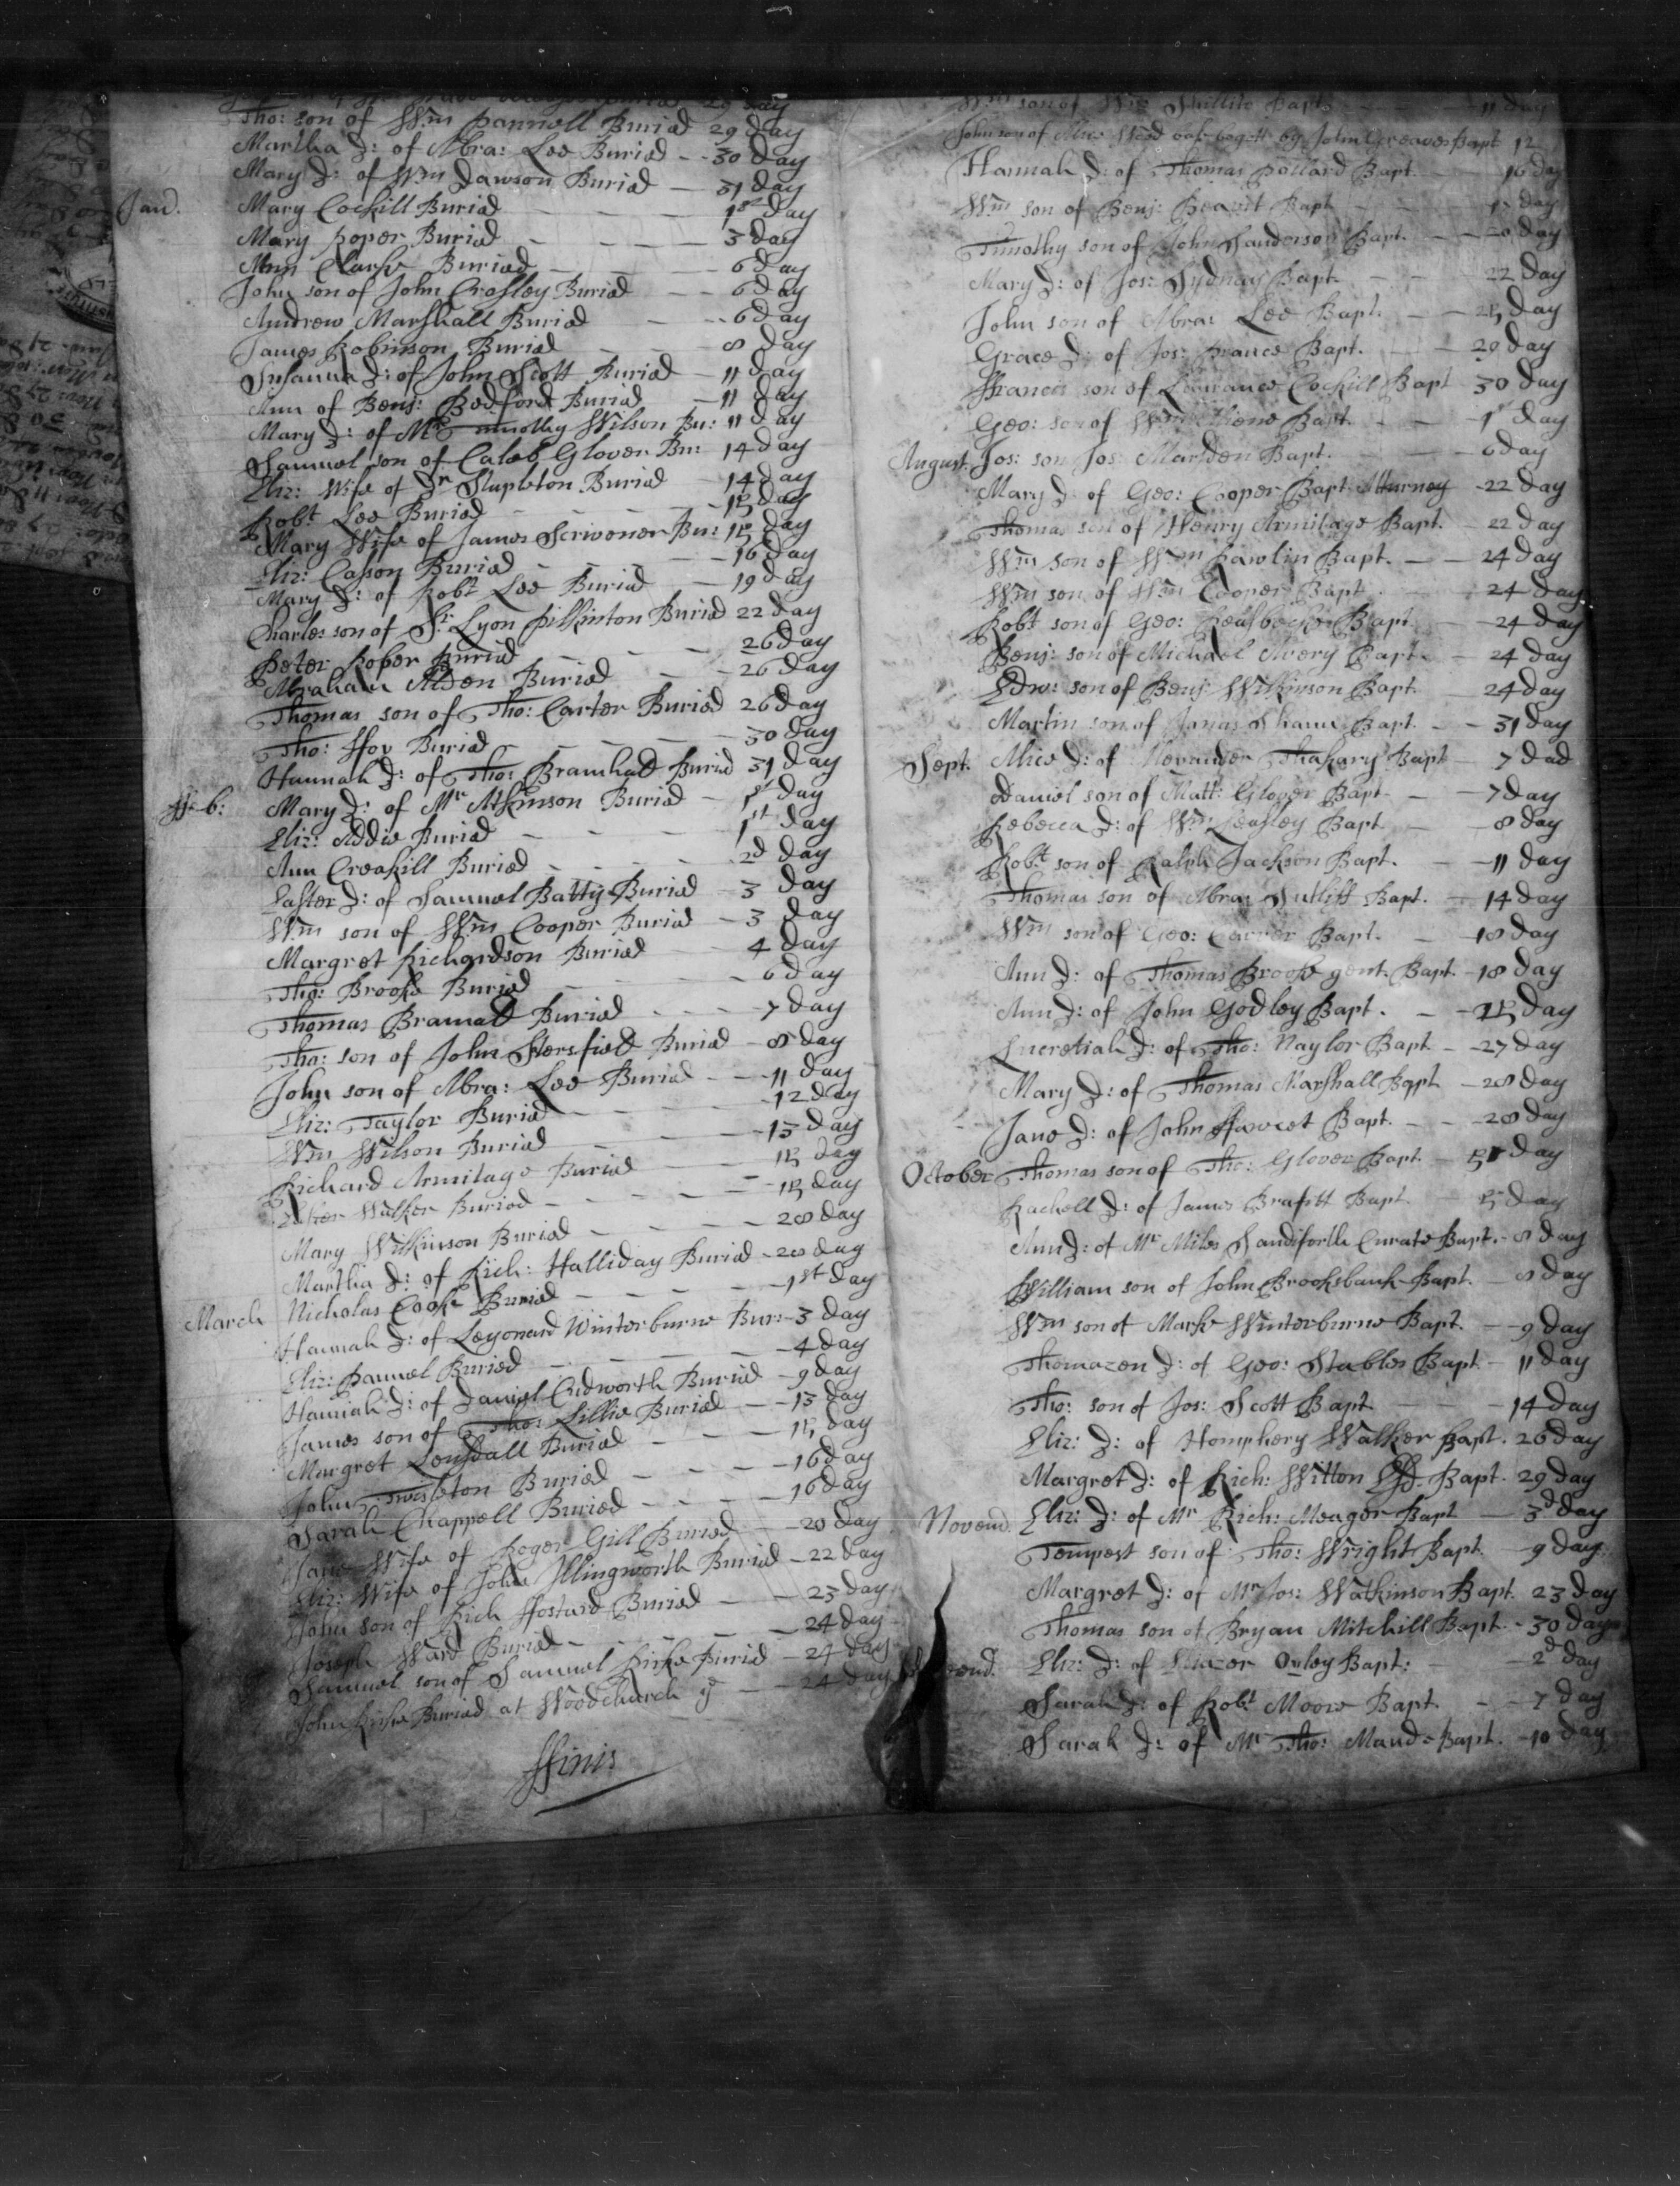 29 day
Tho: son of Wm Pannell Buried 29 day
Martha D: of Abra: Lee Buried - - 30 day
Mary D: of Wm Dawson Buried — 31 day
Jan. Mary Cockill Buried — — — 1st day
Mary Roper Buried — — — 3 day
Ann Clarke Buried — — — 6 day
John son of John Crosley Buried — — 6 day
Andrew Marshall Buried — - - 6 day
James Robinson Buried — — — 8 day
Susanna D: of John Scott Buried — 11 day
Ann of Benj: Bedford Buried — 11 day
Mary D: of Mr Timothy Wilson Bu: 11 day
Samuel son of Caleb Glover Bu: 14 day
Eliz: Wife of Dr Stapleton Buried — 14 day
Robt Lee Buried — — — 15 day
Mary Wife of James Scrivener Bu: 15 day
Eliz: Casson Buried — — — 16 day
Mary D: of Robt Lee Buried — 19 day
Charles son of Sr Lyon Pilkinton Buried 22 day
Peter Roper Buried — — — 26 day
Abraham Alden Buried — — 26 day
Thomas son of Tho: Carter Buried 26 day
Tho: ffox Buried — — — 30 day
Hannah D: of Tho: Bramhall Buried 31 day
ffeb: Mary D: of Mr Atkinson Buried — 1st day
Eliz: Addie Buried — — — 1st day
Ann Creakill Buried — — — 2d day
Easter D: of Samuel Batty Buried — 3 day
Wm son of Wm Cooper Buried — 3 day
Margret Richardson Buried — 4 day
Tho: Brooke Buried — — — 6 day
Thomas Bramall Buried - - - 7 day
Tho: son of John Hersfield Buried — 8 day
John son of Abra: Lee Buried - - 11 day
Eliz: Taylor Buried — — — 12 day
Wm Wilson Buried — — — 13 day
Richard Armitage Buried — — 15 day
Walker Buried — — — 15 day
Mary Wilkinson Buried — — — 28 day
Martha D: of Rich: Halliday Buried - 28 day
March Nicholas Cooke Buried — — — 1st day
Hannah D: of Leyonard Winterburne Bur: - 3 day
Eliz: Pannel Buried — — — 4 day
Hannah D: of Daniel Cudworth Buried - 9 day
James son of Tho: Lillie Buried — 13 day
Margret Lonsdall Buried — — — 15 day
John Twisleton Buried — — — 16 day
Sarah Chappell Buried - - - 16 day
Jane Wife of Roger Gill Buried — 20 day
Eliz: Wife of John Illingworth Buried - 22 day
John son of Rich ffostard Buried — — 23 day
Joseph Ward Buried — — — 24 day
Samuel son of Samuel Kirke Buried — 24 day
John Kirke Buried at Woodchurch ye — — 24 day
ffinis
Wm son of Wm Shillito Bapt. — — 11 day
John son of Alice Wood begott by John Greaves Bapt 12
Hannah D: of Thomas Pollard Bapt. — 16 day
Wm son of Benj: Bapt — — day
Timothy son of John Sanderson Bapt. — — 20 day
Mary D: of Jos: Sydnay Bapt. — — 22 day
John son of Abra: Lee Bapt. — — 25 day
Grace D: of Jos: France Bapt. — — 29 day
ffrancis son of Lawrance Cockill Bapt 30 day
Geo: son of Wm Bapt. — — 1st day
August. Jos: son Jos: Marsden Bapt. — — 6 day
Mary D: of Geo: Cooper Bapt. Atturney - 22 day
Thomas son of Henry Armitage Bapt. — 22 day
Wm son of Wm Rawlin Bapt. — — 24 day
Wm son of Wm Cooper Bapt — — 24 day
Robt son of Geo: Bapt — 24 day
Benj: son of Michael Avery Bapt. — 24 day
Edw: son of Benj: Wilkinson Bapt. 24 day
Martin son of Jonas Bapt. — — 31 day
Sept. Alice D: of Thakary Bapt — 7 dad
Daniel son of Matt: Glover Bapt — — 7 day
Rebecca D: of Wm Bapt — — 8 day
Robt son of Ralph Jackson Bapt. — — 11 day
Thomas son of Abra: Sutliff Bapt. — 14 day
Wm son of Geo: Carver Bapt. — 18 day
Ann D: of Thomas Brooke gent. Bapt - 18 day
Ann D: of John Godley Bapt. — — 25 day
Lucretiah D: of Tho: Naylor Bapt — - 27 day
Mary D: of Thomas Marshall Bapt — 28 day
Jane D: of John ffawcet Bapt. — — 28 day
October Thomas son of Tho: Glover Bapt. — 5 day
Rachell D: of James Brafitt Bapt. — 5 day
Ann D: of Mr Miles Sandiforth Curate Bapt. - 8 day
William son of John Brooksbank Bapt. — 8 day
Wm son of Marke Winterburne Bapt. — - 9 day
Thomazen D: of Geo: Stables Bapt — 11 day
Tho: son of Jos: Scott Bapt — — — 14 day
Eliz: D: of Homphery Walker Bapt. 26 day
Margret D: of Rich: Witton Esq. Bapt. 29 day
Novem. Eliz: D: of Mr Rich: Meager Bapt — 3d day
Tempest son of Tho: Wright Bapt. — 9 day
Margret D: of Mr Jos: Watkinson Bapt. 23 day
Thomas son of Bryan Mitchill Bapt. - 30 day
Eliz: D: of Eliazer Oxley Bapt: — 2d day
Sarah D: of Robt Moore Bapt. — - 7 day
Sarah D: of Mr Tho: Maude Bapt. - 10 day